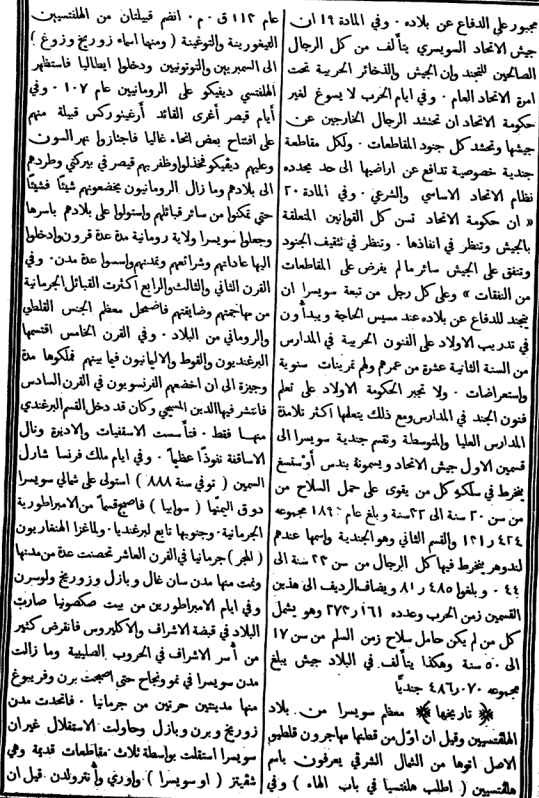 مجبور على الدفاع عن بلاده · وفي المادة ١٩ ان
جيش الاتحاد السويسري يتأَلف من كل الرجال
الصالحين للتجند وان الجيش والذخائر الحربية تحت
امرة الاتحاد العام · وفي ايام الحرب لا يسوغ لغير
حكومة الاتحاد ان تحتشد الرجال الخارجين عن
جيشها وتحشد كل جنود المقاطعات · ولكل مقاطعة
جندية خصوصية تدافع عن اراضيها الى حد يحدده
نظام الاتحاد الاساسي والشرعي · وفي المادة ٢٠
« ان حكومة الاتحاد تسن كل القوانين المتعلقة
بالجيش وتنظر في انفاذها · وتنظر في تثقيف الجنود
وتنفق على الجيش سائر ما لم يفرض على المقاطعات
من النفقات » وعلى كل رجل من تبعة سويسرا ان
يتجند للدفاع عن بلاده عند مسيس الحاجة ويبدأُون
في تدريب الاولاد على الفنون الحربية في المدارس
من السنة الثانية عشرة من عمرهم ولهم تمرينات سنوية
واستعراضات · ولا تجبر الحكومة الاولاد على تعلم
فنون الجند في المدارس ومع ذلك يتعلمها اكثر تلامذة
المدارس العليا والمتوسطة وتقسم جندية سويسرا الى
قسمين الاول جيش الاتحاد ويسمونهُ بندس أَوتسغ
ينخرط في سلكهِ كل من يقوى على حمل السلاح من
من سن ٢٠ سنة الى ٣٢ سنة وبلغ عام ١٨٩٠ مجموعه
٤٢٤ر١٢١ والقسم الثاني وهو الجندية واسمها عندهم
لندوهر ينخرط فيها كل الرجال من سن ٣٣ سنة الى
٤٤ · وبلغوا ٤٨٥ر٨١ ويضاف الرديف الى هذين
القسمين زمن الحرب وعدده ١٦١ر٢٧٣ وهو يشمل
كل من لم يكن حامل سلاح زمن السلم من سن ١٧
الى ٥٠ سنة وهكذا يتأَلف في البلاد جيش يبلغ
مجموعه ٠٧٠ر٤٨٦ جنديًّا
﴿ تاريخها ﴾ معظم سويسرا من بلاد
الهلفنسيين وقيل ان اوّل من قطنها مهاجرون قلطيو
الاصل اتوها من الشمال الشرقي يعرفون باسم
هلفنسيين ( اطلب هلفتسيا في باب الهاء ) وفي
عام ١١٢ ق · م · انضم قبيلتان من الهلفنسيين
التيغورينة والتوغينة ( ومنها اسماء زوريخ وزوغ )
الى السمبريين والتوتونيين ودخلوا ايطاليا فاستظهر
الهلفنسي ديفيكو على الرومانيين عام ١٠٧ · وفي
أيام قيصر أغرى القائد أرغينوركس قبيلة منهم
على افتتاح بعض انحاء غاليا فاجتازوا نهر السون
وعليهم ديڤيكو فخذلوا وظفر بهم قيصر في بيركتي وطردهم
الى بلادهم وما زال الرومانيون يخضعونهم شيئًا فشيئًا
حتى تمكنوا من سائر قبائلهم واستولوا على بلادهم باسرها
وجعلوا سويسرا ولاية رومانية مدة عدة قرون وادخلوا
اليها عاداتهم وشرائعهم وتمدنهم واسسوا عدة مدن · وفي
القرن الثاني والثالث والرابع اكثرت القبائل الجرمانية
من مهاجمتهم وضايقتهم فاضمحل معظم الجنس القلطي
والروماني من البلاد · وفي القرن الخامس اقتسمها
البرغنديون والقوط والاليانيون فيما بينهم فملكوها مدة
وجيزة الى ان اخضعهم الفرنسويون في القرن السادس
فانتشر فيها الدين المسيحي وكان قد دخل القسم البرغندي
منها فقط · فتأَسست الاسقفيات والاديرة ونال
الاساقفة نفوذًا عظيماً · وفي ايام ملك فرنسا شارل
السمين ( توفي سنة ٨٨٨ ) استولى على شمالي سويسرا
دوق اليمنيا ( سوابيا ) فاصبح قسماً من الامبراطورية
الجرمانية · وجنوبها تابع لبرغنديا · ولما غزا الهنغاريون
( المجر ) جرمانيا في القرن العاشر تحصنت عدة من مدنها
ونمت منها مدن سان غال وبازل وزوريخ ولوسرن
وفي ايام الامبراطورين من بيت صكصونيا صارت
البلاد في قبضة الاشراف والاكليروس فانقرض كثير
من أُسر الاشراف في الحروب الصليبية وما زالت
مدن سويسرا في نمو ونجاح حتى اصبحت برن وفريبوغ
منها مدينتين حرتين من جرمانيا · فاتحدت مدن
زوريخ وبرن وبازل وحاولت الاستقلال غير ان
سويسرا استقلت بواسطة ثلاث مقاطعات قديمة وهي
شڤيتز ( او سويسرا ) واوري وأنترولدن · قيل ان